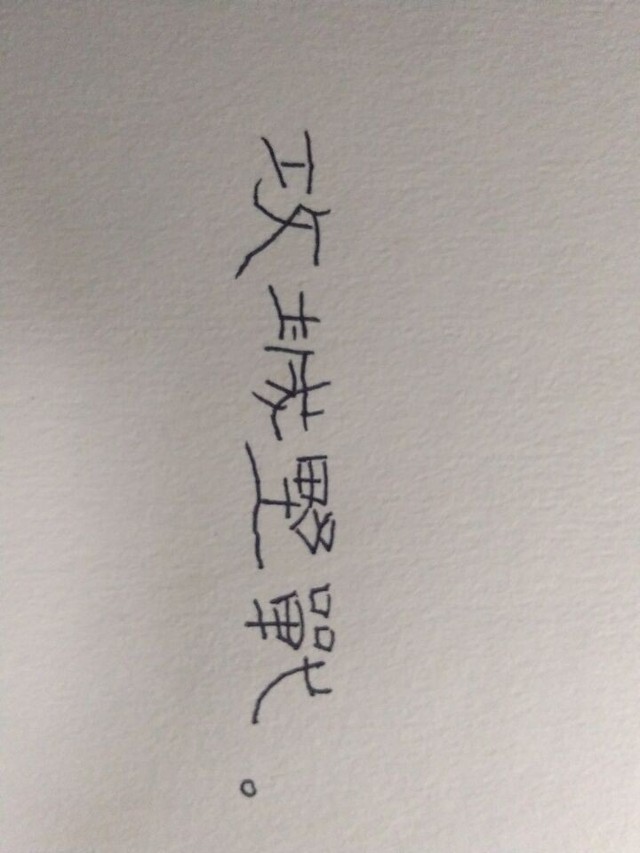 攻城野戰。